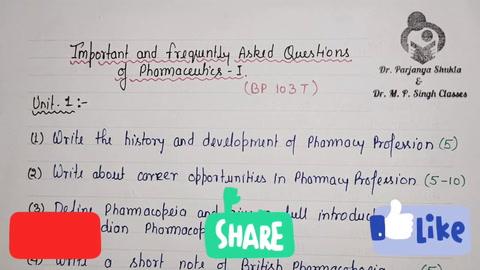 Important and frequently Asked Questions
of Pharmaceutics - I.
(BP 103T)
Dr. Parjanya Shukla
&
Dr. M. P. Singh Classes
Unit. 1 :-
(1) Write the history and development of Pharmacy Profession (5)
(2) Write about career opportunities in Pharmacy Profession (5-10)
(3) Define Pharmacopeia and full introduc
dian Pharmacop
SHARE
Like
(4) Write a short note of British Pharmacopoeia (5)